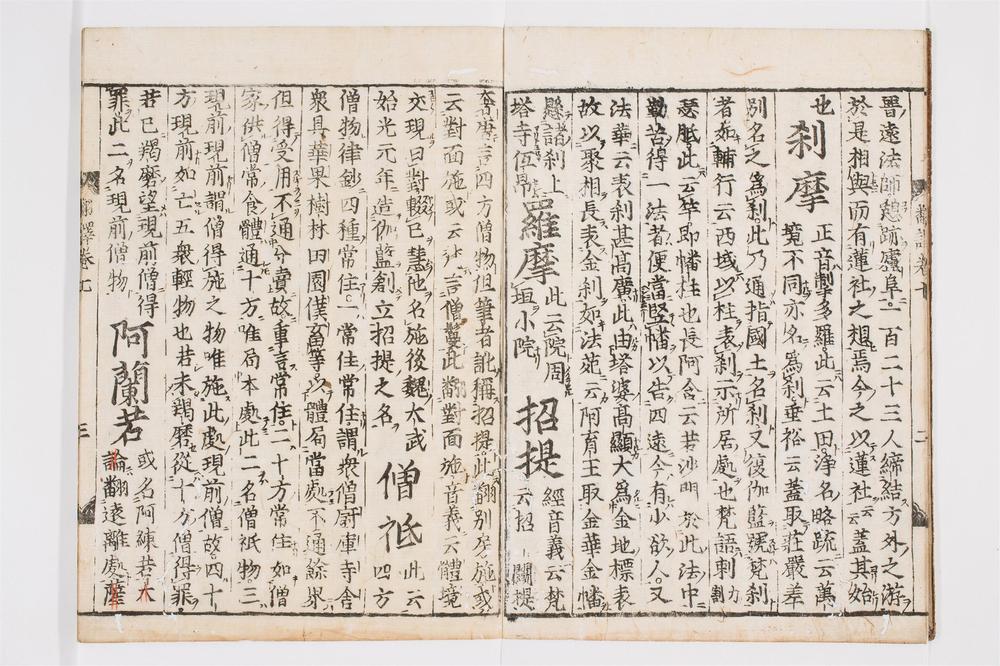 晋遠法師憩跡廬阜一百二十三人締結方外之游
於是相與而有蓮社之想焉今之以蓮社云蓋其始
也 刹摩 正音掣多羅此云土田淨名略疏云萬
境不同亦名爲刹垂裕云蓋取莊嚴差
別名之爲刹此乃通指國土名刹又復伽藍號梵刹
者如輔行云西域以柱表刹示所居處也梵語刺力割
瑟胝此云竿即幡柱也長阿含云若沙門於此法中
勤苦得一法者便當竪幡以告四遠今有少欲人又
法華云表刹甚高廣此由塔婆高顯大爲金地標表
故以聚相長表金刹如法苑云阿育王取金華金幡
懸諸刹上
塔寺低昂 羅摩 此云院周
垣小院 招提 經音義云梵
云招鬪提
奢唐言四方僧物但筆者訛稱招提此翻別房施或
云對面施或云梵言僧鬘此翻對面施音義云體境
交現曰對輟已慧他名施後魏太武
始光元年造伽藍創立招提之名 僧祇 此云四方
僧物律鈔四種常住一常住常住謂衆僧厨庫寺舍
衆具華果樹林田園僕畜等以體局當處不通餘界
但得受用不通分賣故重言常住二十方常住如僧
家供僧常食體通十方唯局本處此二名僧祇物三
現前現前謂僧得施之物唯施此處現前僧故四十
方現前如亡五衆輕物也若未羯磨從十方僧得罪
若已羯磨望現前僧得
罪此二名現前僧物 阿蘭若 或名阿練若大
論翻遠離處薩
翻譯卷七
三